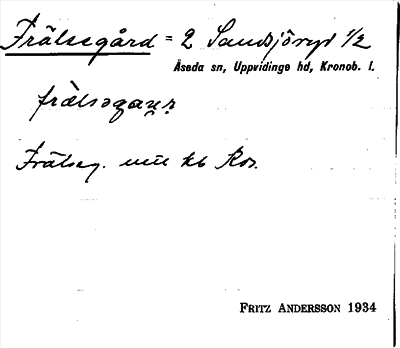 Frälsegård = 2 Sandsjöryd 1/2
Åseda sn, Uppvidinge hd, Kronob. l.
Frälseg.
FRITZ ANDERSSON 1934